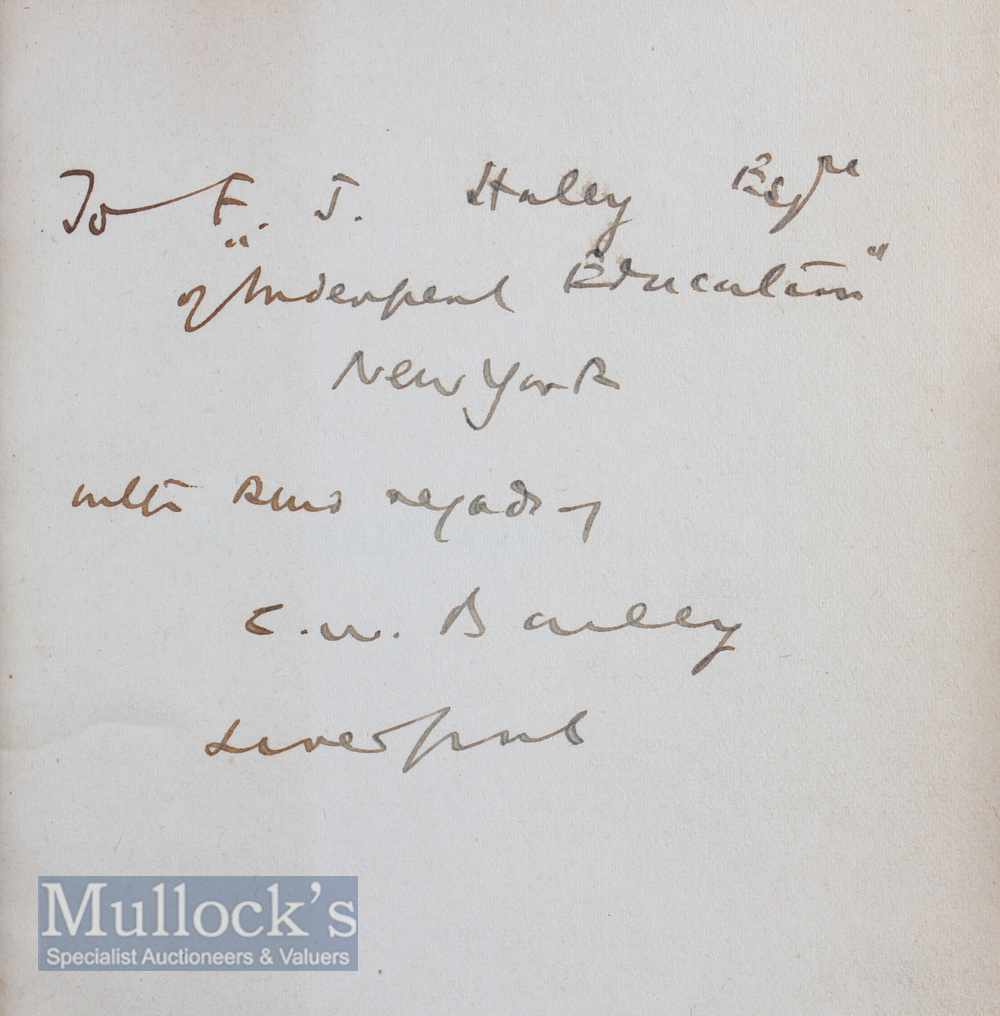 To F. J. Haley Esqre
of "Independent Education"
New York
with kind regards
C. W. Bailey
Liverpool
Mullock's
Specialist Auctioneers & Valuers